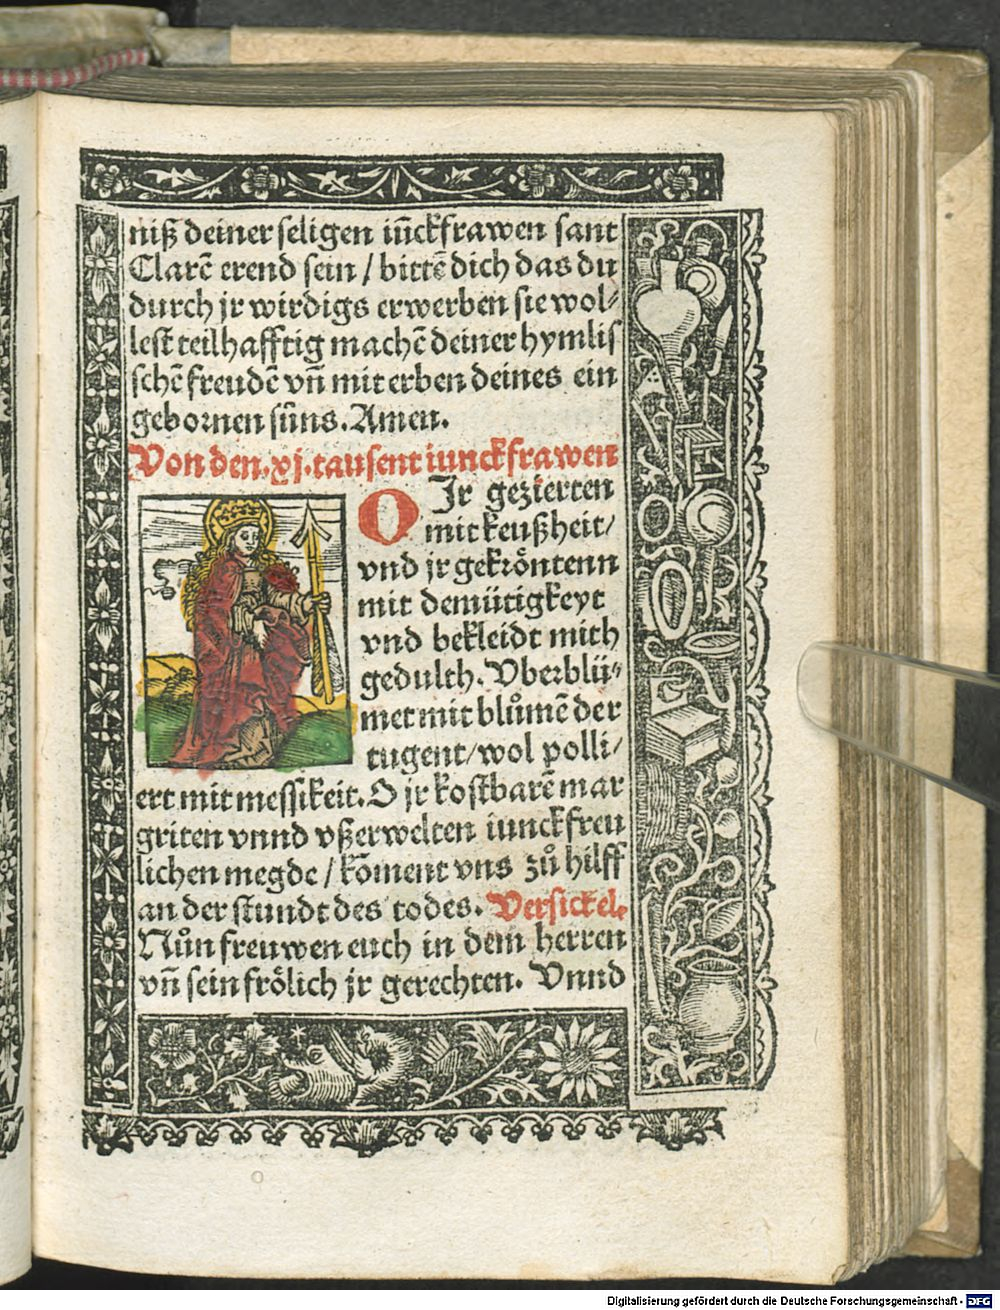 niß deiner seligen iūckfrawen sant
Clarē erend sein / bittē dich das du
durch jr wirdigs erwerben sie wol⸗
lest teilhafftig machē deiner hymlis
schē freudē vñ mit erben deines ein
gebornen sūns. Amen.
Von den .xj. tausent iunckfrawen
O Jr gezierten
mit keußheit /
vnd jr gekrőntenn
mit demütigkeyt
vnd bekleidt mith
gedulth. Vberblü⸗
met mit blůmē der
tugent / wol polli /
ert mit messikeit. O jr kostbarē mar
griten vnnd vßerwelten iunckfreu
lichen megde / kōment vns zů hilff
an der stundt des todes. Versickel.
Nůn freuwen euch in dem herren
vñ sein frőlich jr gerechten. Vnnd
Digitalisierung gefördert durch die Deutsche Forschungsgemeinschaft - DFG